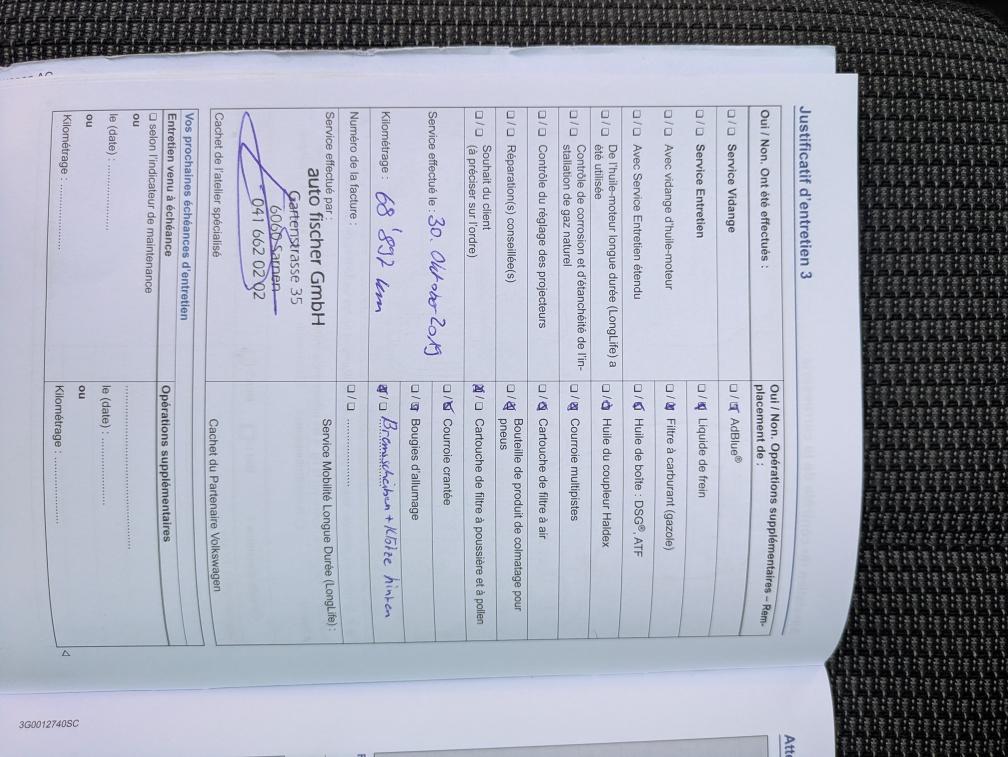 Justificatif d'entretien 3
Oui / Non. Ont été effectués :
❏ / ❏ Service Vidange
❏ / ❏ Service Entretien
❏ / ❏ Avec vidange d'huile-moteur
❏ / ❏ Avec Service Entretien étendu
❏ / ❏ De l'huile-moteur longue durée (LongLife) a
été utilisée
❏ / ❏ Contrôle de corrosion et d'étanchéité de l'in-
stallation de gaz naturel
❏ / ❏ Contrôle du réglage des projecteurs
❏ / ❏ Réparation(s) conseillée(s)
❏ / ❏ Souhait du client
(à préciser sur l'ordre)
Service effectué le : 30. Oktober 2019
Kilométrage : 68'892 km
Numéro de la facture :
Service effectué par :
auto fischer GmbH
Gartenstrasse 35
6060 Sarnen
041 662 02 02
Cachet de l'atelier spécialisé
Oui / Non. Opérations supplémentaires – Rem-
placement de :
❏ / ☒ AdBlue®
❏ / ☒ Liquide de frein
❏ / ☒ Filtre à carburant (gazole)
❏ / ☒ Huile de boîte : DSG®, ATF
❏ / ☒ Huile du coupleur Haldex
❏ / ☒ Courroie multipistes
❏ / ☒ Cartouche de filtre à air
❏ / ☒ Bouteille de produit de colmatage pour
pneus
☒ / ❏ Cartouche de filtre à poussière et à pollen
❏ / ☒ Courroie crantée
❏ / ☒ Bougies d'allumage
☒ / ❏ Bremsscheiben + Klötze hinten
❏ / ❏ ....................
Service Mobilité Longue Durée (LongLife) :
Cachet du Partenaire Volkswagen
Vos prochaines échéances d'entretien
Entretien venu à échéance
❏ selon l'indicateur de maintenance
ou
le (date) : ....................
ou
Kilométrage : ....................
Opérations supplémentaires
........................................
le (date) : ....................
ou
Kilométrage : ....................
3G0012740SC